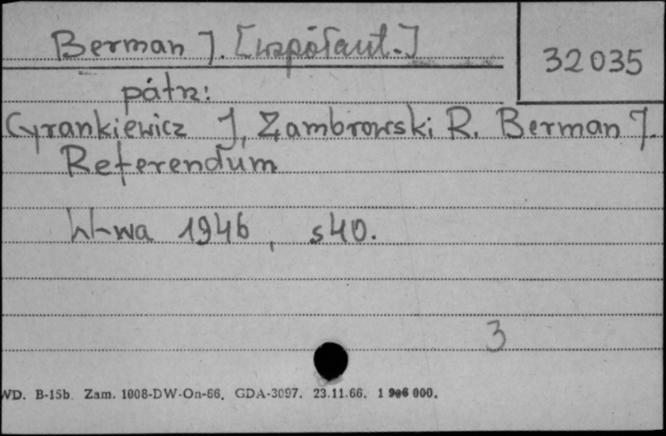 Berman J. [współaut.]
32035
pátrz:
Cyrankiewicz J, Zambrowski R. Berman J.
Referendum
W-wa 1946, s40.
3
WD. B-15b. Zam. 1008-DW-On-66. GDA-3097. 23.11.66. 1 906 000.